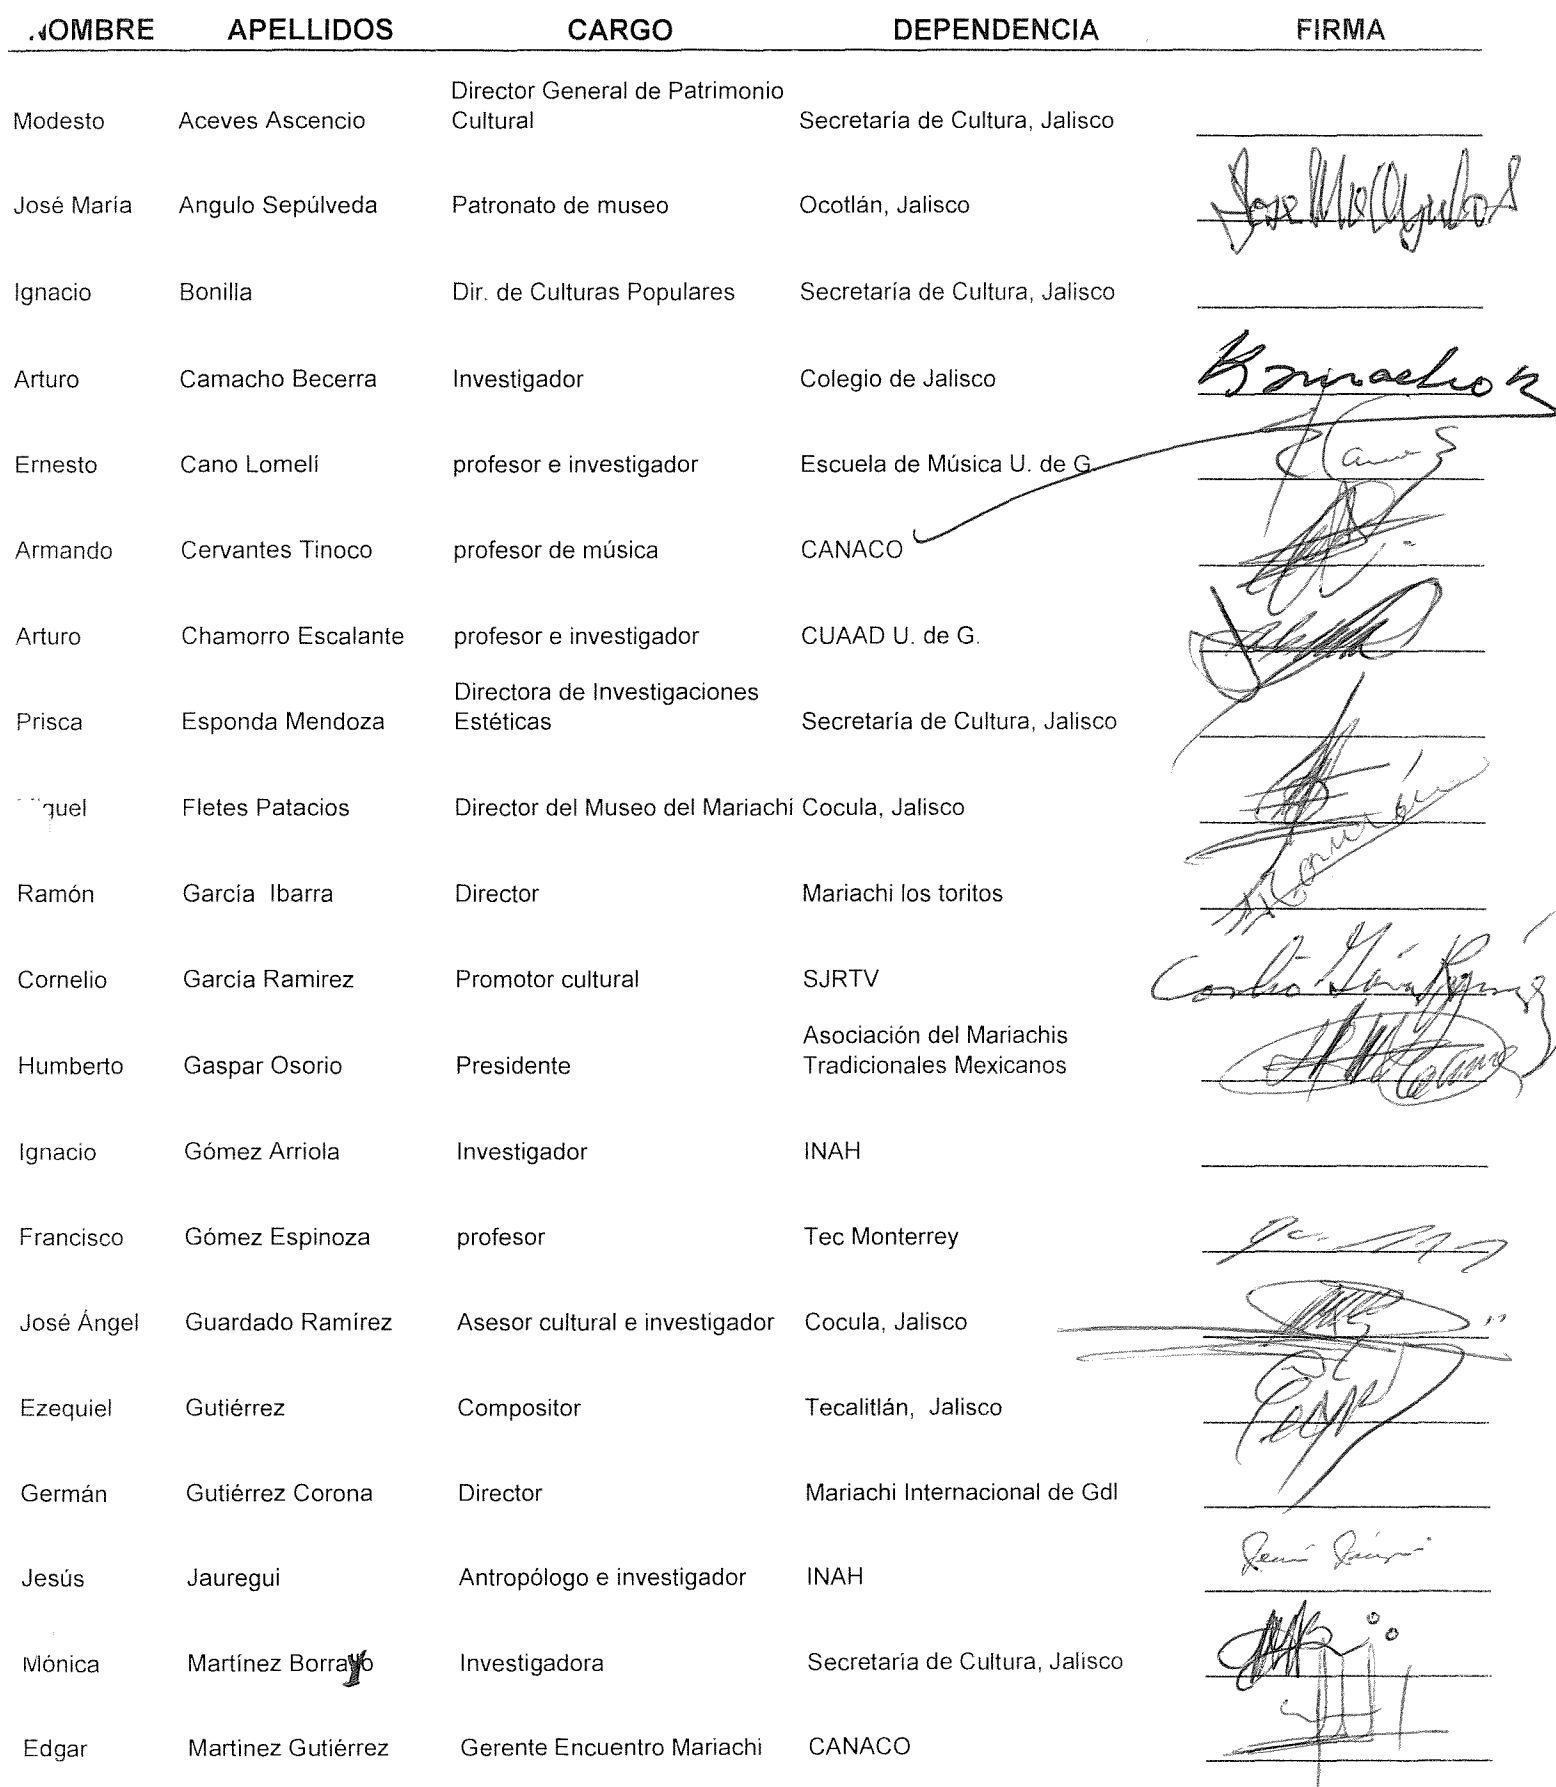 NOMBRE APELLIDOS CARGO DEPENDENCIA FIRMA
Director General de Patrimonio
Modesto Aceves Ascencio Cultural Secretaría de Cultura, Jalisco
José María Angulo Sepúlveda Patronato de museo Ocotlán, Jalisco
Ignacio Bonilla Dir. de Culturas Populares Secretaría de Cultura, Jalisco
Arturo Camacho Becerra Investigador Colegio de Jalisco
Ernesto Cano Lomelí profesor e investigador Escuela de Música U. de G.
Armando Cervantes Tinoco profesor de música CANACO
Arturo Chamorro Escalante profesor e investigador CUAAD U. de G.
Directora de Investigaciones
Prisca Esponda Mendoza Estéticas Secretaría de Cultura, Jalisco
Fletes Patacios Director del Museo del Mariachi Cocula, Jalisco
Ramón García Ibarra Director Mariachi los toritos
Cornelio García Ramirez Promotor cultural SJRTV
Asociación del Mariachis
Humberto Gaspar Osorio Presidente Tradicionales Mexicanos
Ignacio Gómez Arriola Investigador INAH
Francisco Gómez Espinoza profesor Tec Monterrey
José Ángel Guardado Ramírez Asesor cultural e investigador Cocula, Jalisco
Ezequiel Gutiérrez Compositor Tecalitlán, Jalisco
Germán Gutiérrez Corona Director Mariachi Internacional de Gdl
Jesús Jauregui Antropólogo e investigador INAH
Mónica Martínez Borrayo Investigadora Secretaría de Cultura, Jalisco
Edgar Martinez Gutiérrez Gerente Encuentro Mariachi CANACO